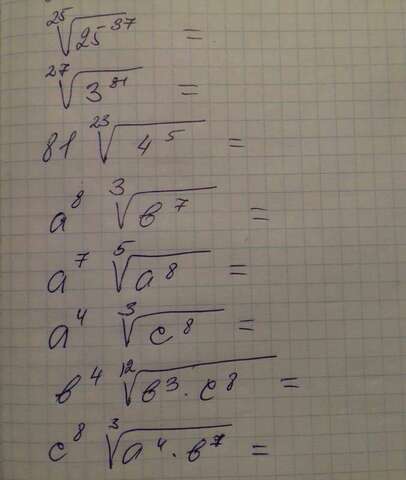 ²⁵√25³⁷ =
²⁷√3⁸¹ =
81 ²³√4⁵ =
a⁸ ³√b⁷ =
a⁷ ⁵√a⁸ =
a⁴ ³√c⁸ =
b⁴ ¹²√b³·c⁸ =
c⁸ ³√a⁴·b⁷ =